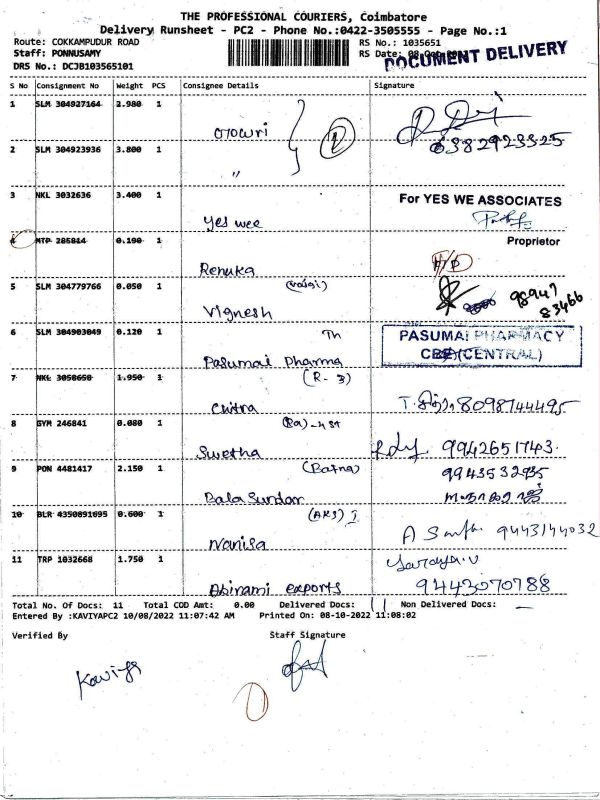 THE PROFESSIONAL COURIERS, Coimbatore
Delivery Runsheet - PC2 - Phone No.:0422-3505555 - Page No.:1
Route: COKKAMPUDUR ROAD RS No.: 1035651
Staff: PONNUSAMY RS Date: 08-Oct
DOCUMENT DELIVERY
DRS No.: DCJB103565101
S No Consignment No Weight PCS Consignee Details Signature
1 SLM 304927164 2.980 1
2 SLM 304923936 3.800 1
6382923325
"
3 NKL 3032636 3.400 1 For YES WE ASSOCIATES
Yes wee
4 MTP 285814 0.190 1 Proprietor
Renuka
5 SLM 304779766 0.050 1
Vignesh 98947
83466
6 SLM 304903049 0.120 1 Th PASUMAI PHARMACY
Pasumai Pharma CBE(CENTRAL)
7 NKL 3058650 1.950 1 (R-3)
Chitra 8098744495
8 GYM 246841 0.080 1
Swetha 9942651743
9 PON 4481417 2.150 1 (Ratna)
Bala Sundar
10 BLR 4350891695 0.600 1
9443144032
11 TRP 1032668 1.750 1
Abinami exports 9443070788
Total No. Of Docs: 11 Total COD Amt: 0.00 Delivered Docs: 11 Non Delivered Docs: -
Entered By :KAVIYAPC2 10/08/2022 11:07:42 AM Printed On: 08-10-2022 11:08:02
Verified By Staff Signature
Kaviya